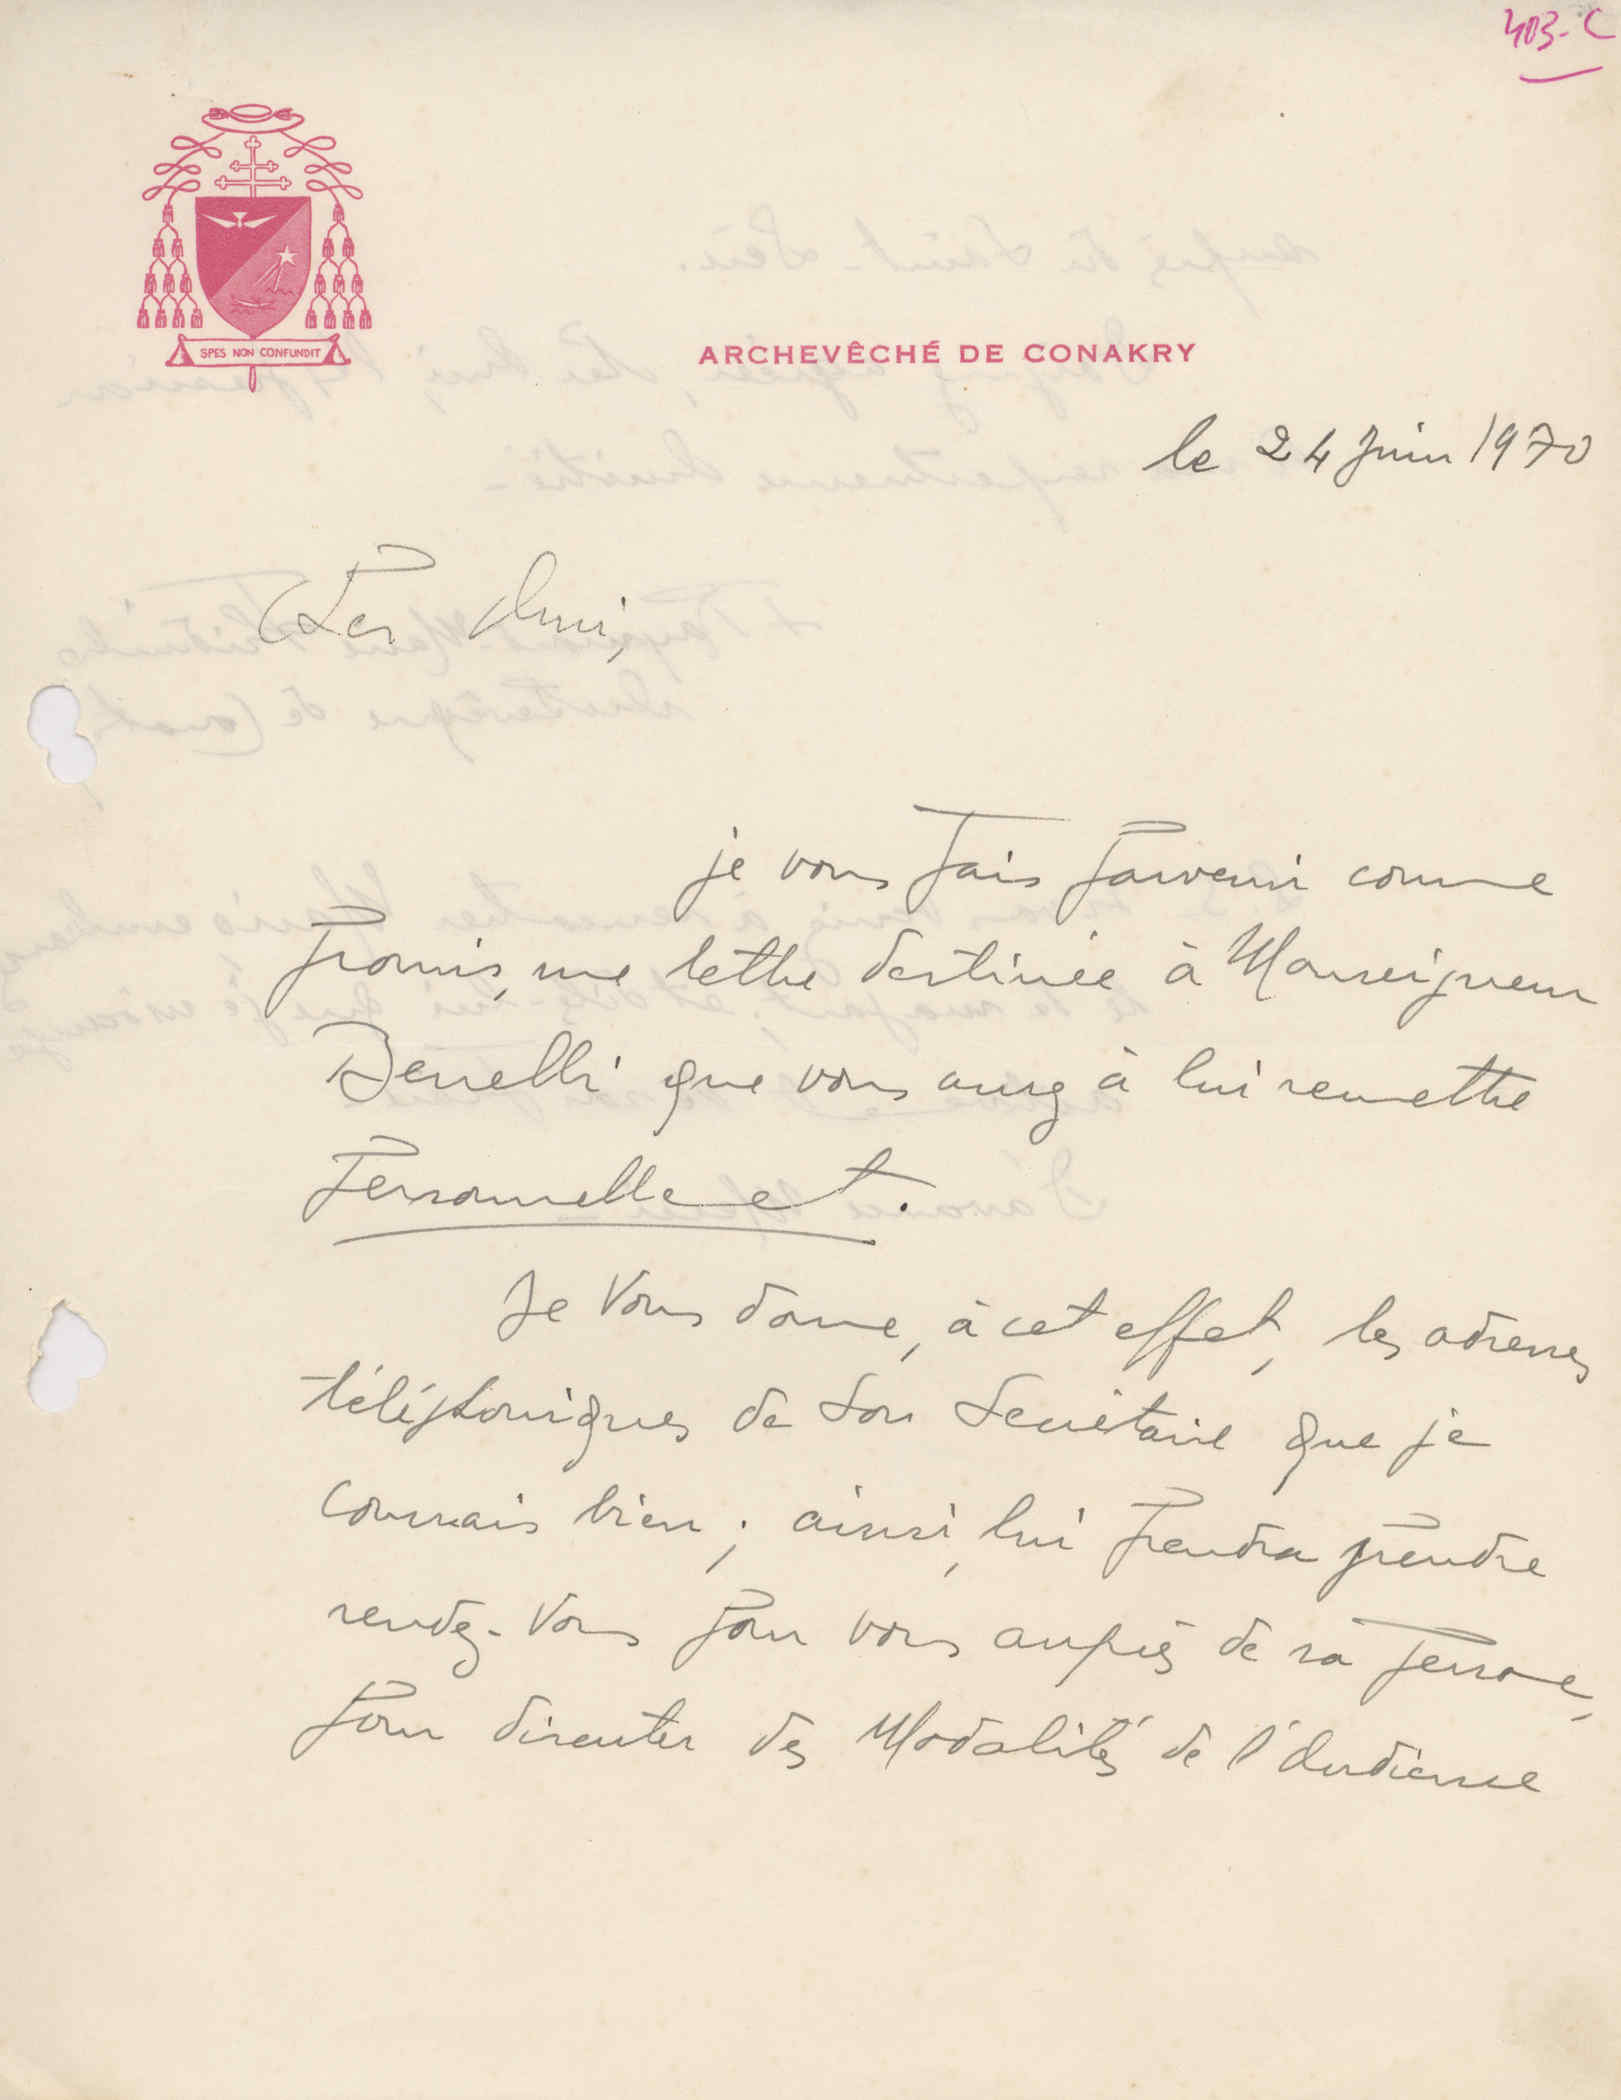 403-C
SPES NON CONFUNDIT
ARCHEVÊCHÉ DE CONAKRY
le 24 Juin 1970
Cher Ami,
je vous fais parvenir comme
promis, une lettre destinée à Monseigneur
Benelli que vous aurez à lui remettre
Personnellement.
Je Vous donne, à cet effet, les adresses
téléphoniques de Son Secrétaire que je
connais bien ; ainsi, lui prendre
rendez-Vous pour vous auprès de sa personne,
pour discuter des Modalités de l'Audience